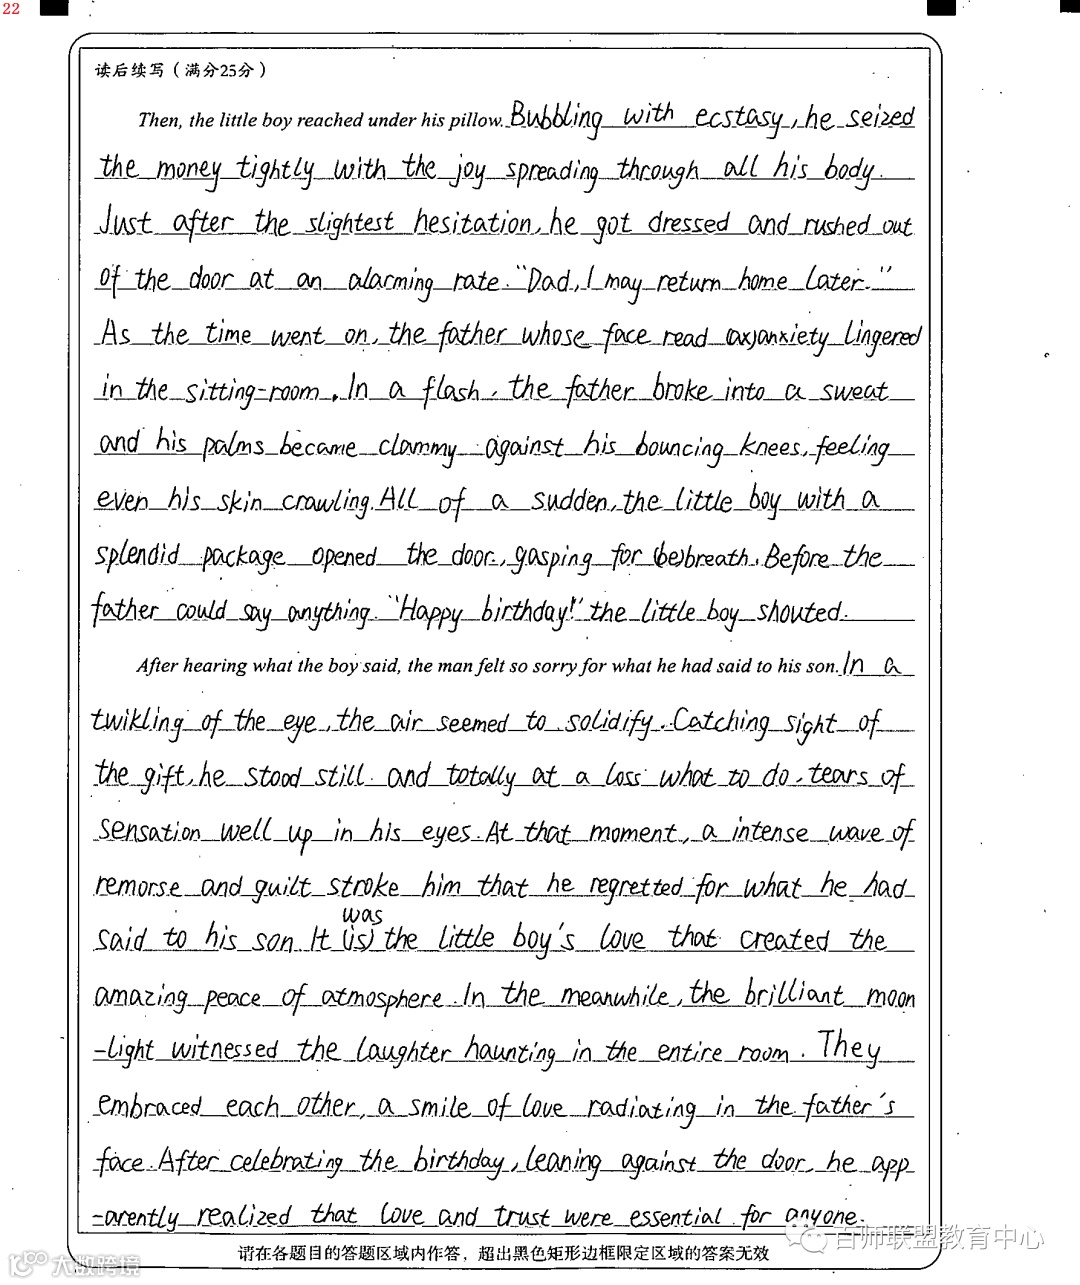 22
读后续写（满分25分）
Then, the little boy reached under his pillow. Bubbling with ecstasy, he seized
the money tightly with the joy spreading through all his body.
Just after the slightest hesitation, he got dressed and rushed out
of the door at an alarming rate. "Dad, I may return home later."
As the time went on, the father whose face read (ax)anxiety lingered
in the sitting-room. In a flash, the father broke into a sweat
and his palms became clammy against his bouncing knees, feeling
even his skin crawling. All of a sudden, the little boy with a
splendid package opened the door, gasping for (be)breath. Before the
father could say anything. "Happy birthday!" the little boy shouted.
After hearing what the boy said, the man felt so sorry for what he had said to his son. In a
twikling of the eye, the air seemed to solidify. Catching sight of
the gift, he stood still and totally at a loss what to do, tears of
sensation well up in his eyes. At that moment, a intense wave of
remorse and guilt stroke him that he regretted for what he had
was
said to his son. It (is) the little boy's love that created the
amazing peace of atmosphere. In the meanwhile, the brilliant moon
-light witnessed the laughter haunting in the entire room. They
embraced each other, a smile of love radiating in the father's
face. After celebrating the birthday, leaning against the door, he app
-arently realized that love and trust were essential for anyone.
请在各题目的答题区域内作答，超出黑色矩形边框限定区域的答案无效
百师联盟教育中心
大数跨境